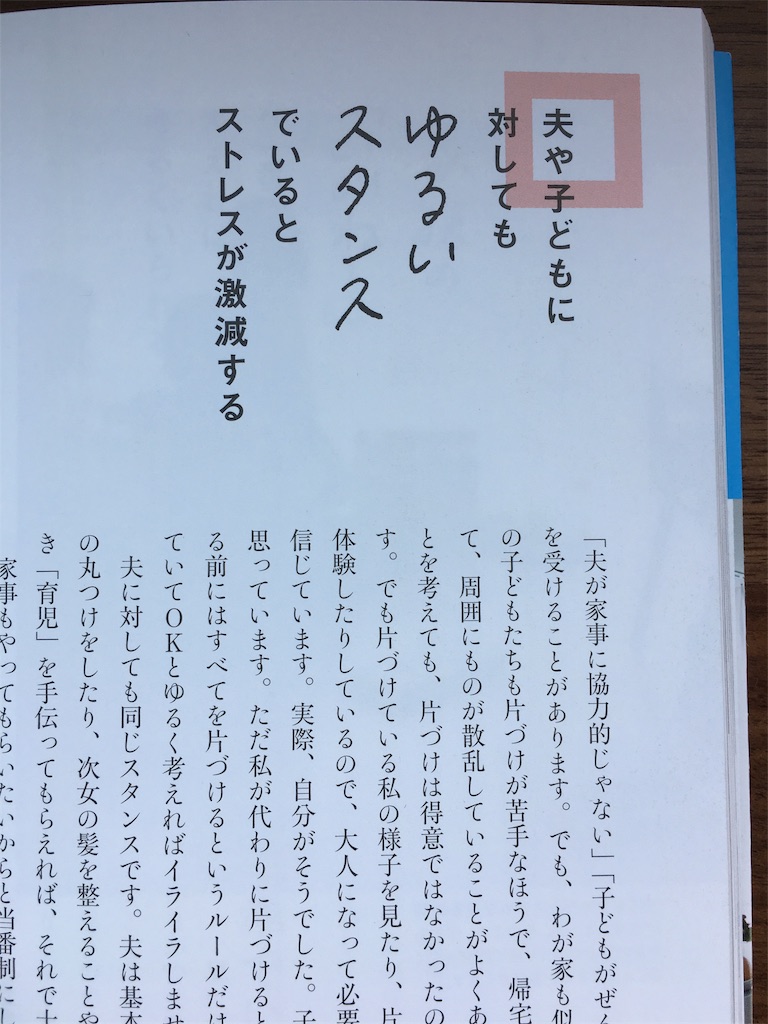 夫や子どもに
対しても
ゆるい
スタンス
でいると
ストレスが激減する
「夫が家事に協力的じゃない」「子どもがぜん
を受けることがあります。でも、わが家も似
の子どもたちも片づけが苦手なほうで、帰宅
て、周囲にものが散乱していることがよくあ
とを考えても、片づけは得意ではなかったの
す。でも片づけている私の様子を見たり、片
体験したりしているので、大人になって必要
信じています。実際、自分がそうでした。子
思っています。ただ私が代わりに片づけると
る前にはすべてを片づけるというルールだけ
ていてOKとゆるく考えればイライラしませ
夫に対しても同じスタンスです。夫は基本
の丸つけをしたり、次女の髪を整えることや
き「育児」を手伝ってもらえれば、それで十
家事もやってもらいたいからと当番制にし